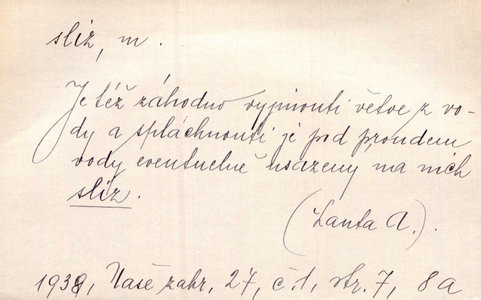 sliz, m.
Je též záhodno vyjmouti větve z vo-
dy a spláchnouti je pod proudem
vody eventuelně usazený na nich
sliz.
(Lanta A.).
1938, Naše zahr., 27, č. 1, str. 7, 8a